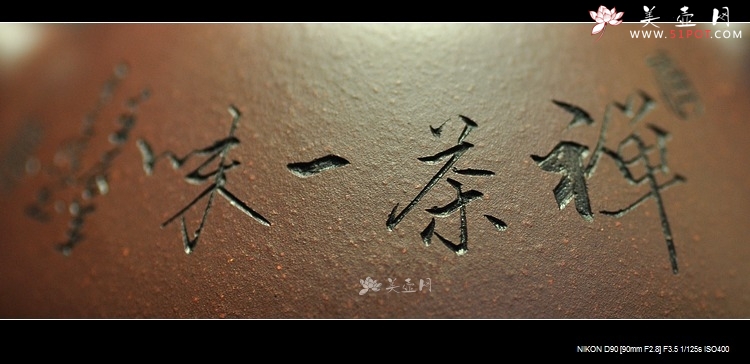 美壶网
WWW.51POT.COM
禅茶一味
美壶网
NIKON D90 [90mm F2.8] F3.5 1/125s ISO400